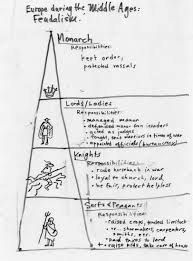 Europe during the Middle Ages:
Feudalism.
Monarch
Responsibilities:
kept order,
protected vassals
Lords/Ladies
Responsibilities:
• managed manor
• defended manor from invaders
• acted as judges
• fought as warriors in times of war
• appointed officials
Knights
Responsibilities:
• rode horseback in war
• loyal to church, lord
• be fair, protect helpless
Serfs & Peasants
Responsibilities:
• raised crops, tended livestock
• shoemakers, carpenters,
smiths, etc.
• paid taxes to lord
• raised kids, take care of home